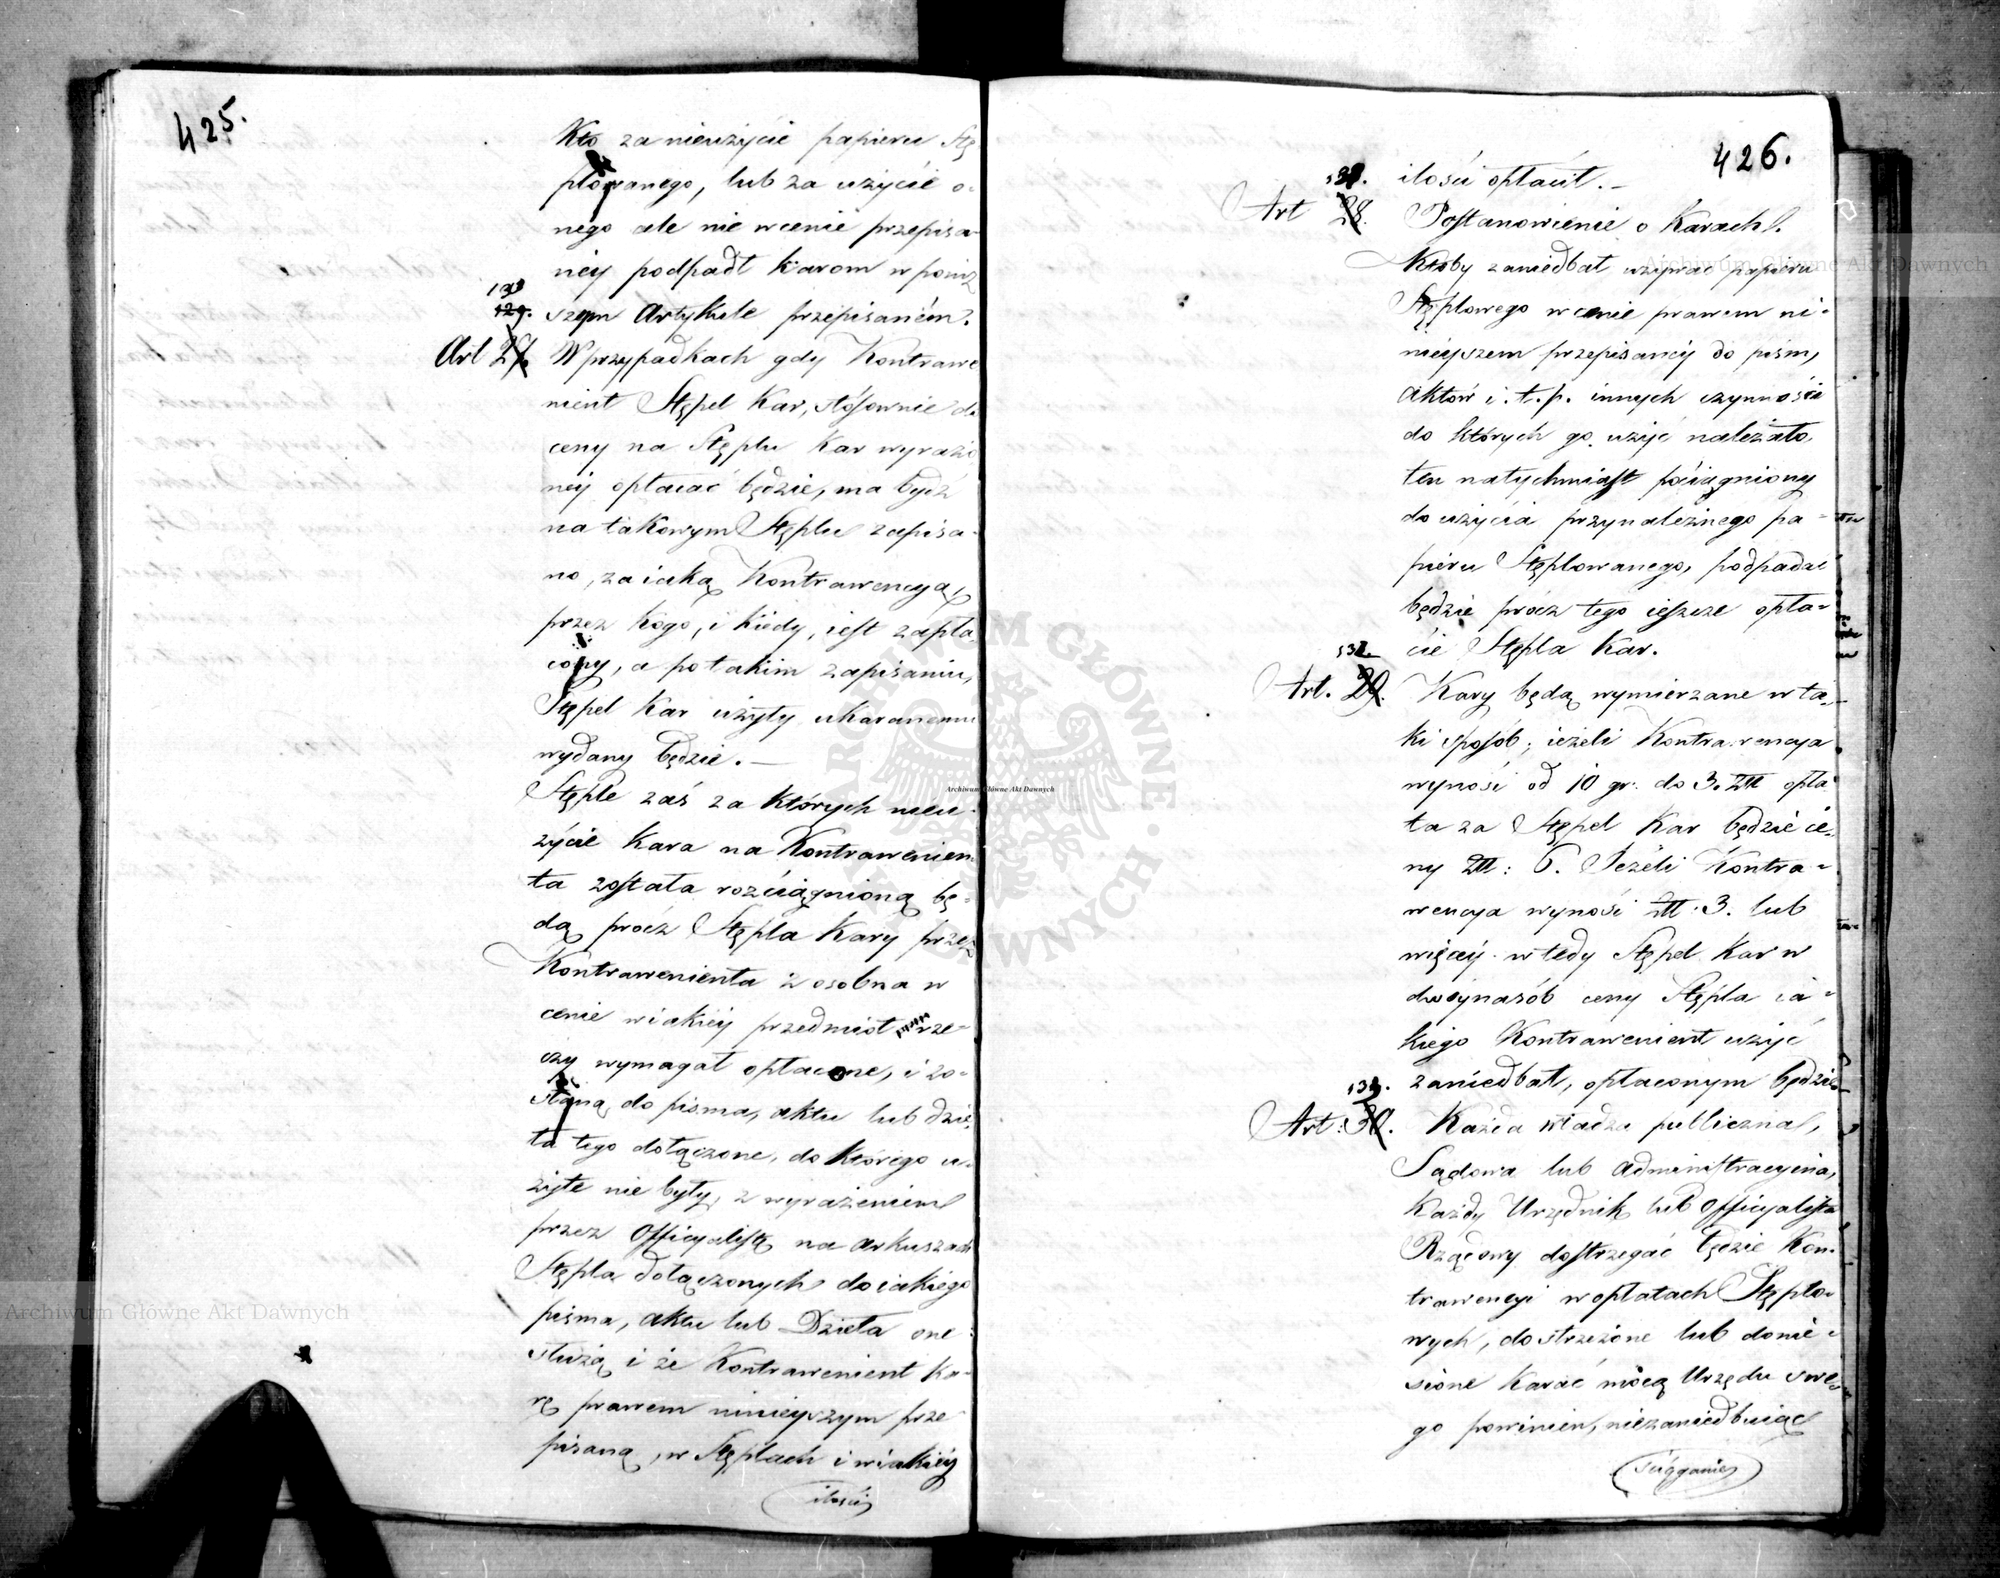 425.
Kto za nieużycie papieru Stę
plowanego, lub za użycie o-
nego ale nie w cenie przepisa-
néy podpadł Karom w poniż
130
129.
szym Artykule przepisaném.
Art 27. W przypadkach gdy Kontrawe
nient Stępel Kar, stósownie do
ceny na Stęplu Kar wyrażo
néy opłacać będzie, ma bydź
na takowym Stęplu zapisa-
no, za iaką Kontrawencyą,
przez kogo, i kiedy, iest zapła-
cony, a po takim zapisaniu,
Stępel Kar użyty ukaranemu
wydany będzie. —
Stęple zaś za których nieu-
życie kara na Kontrawenien
ta została rozciągnioną bę-
dą prócz Stępla Kary przez
Kontrawenienta z osobna w
cenie w iakiéy przedmiot rze-
czy wymagał opłacone, i zo-
staną do pisma, aktu lub dzie-
ła tego dołączone, do którego u-
żyte nie były, z wyrażeniem
przez Officyalistę na arkuszach
Stępla dołączonych do iakiégo
pisma, aktu lub Dzieła one
służą i że Kontrawenient Ka-
rę prawem ninieyszym prze
pisaną, w Stęplach i w iakiéy
ilości
426.
ilości opłacił. —
Art 28. Postanowienie o Karach.
Ktoby zaniedbał używać papieru
Stęplowego w cenie prawem ni-
nieyszem przepisanéy do pism,
aktów i. t. p. innych czynności
do których go użyć należało,
ten natychmiast pociągniony
do użycia przynależnego pa-
pieru Stęplowanego, podpadać
będzie prócz tego ieszcze opła-
132.
cie Stępla Kar.
Art. 29. Kary będą wymierzane w ta-
ki sposób; ieżeli Kontrawencya
wynosi od 10 gr: do 3. Złł opła
ta za Stępel Kar będzie ce-
ny Złł: 6. Jeżeli Kontra-
wencya wynosi Złł. 3. lub
więcéy. wtedy Stępel Kar w
dwóynasób ceny Stępla ia-
kiego Kontrawenient użyć
133.
zaniedbał, opłaconym będzie
Art: 30. Każda władza publiczna,
Sądowa lub administracyina,
każdy Urzędnik lub Officyalista
Rządowy dostrzegać będzie Kon-
trawencyi w opłatach Stęplo-
wych, dostrzeżone lub donie-
sione karać mocą Urzędu swe-
go powinien, niezaniedbuiąc
ściąganie
Archiwum Główne Akt Dawnych
Archiwum Główne Akt Dawnych
Archiwum Główne Akt Dawnych
ARCHIWUM GŁÓWNE AKT DAWNYCH